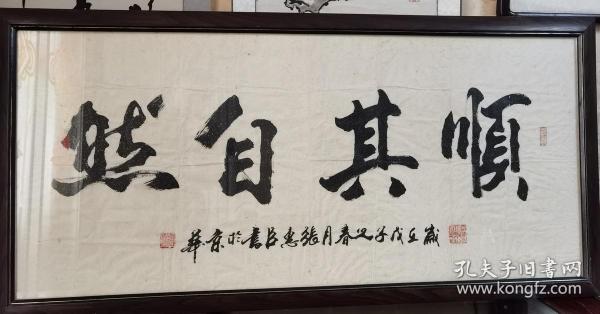 順其自然
歲在戊子迎春月張惠臣書於京華
孔夫子旧书网
www.kongfz.com